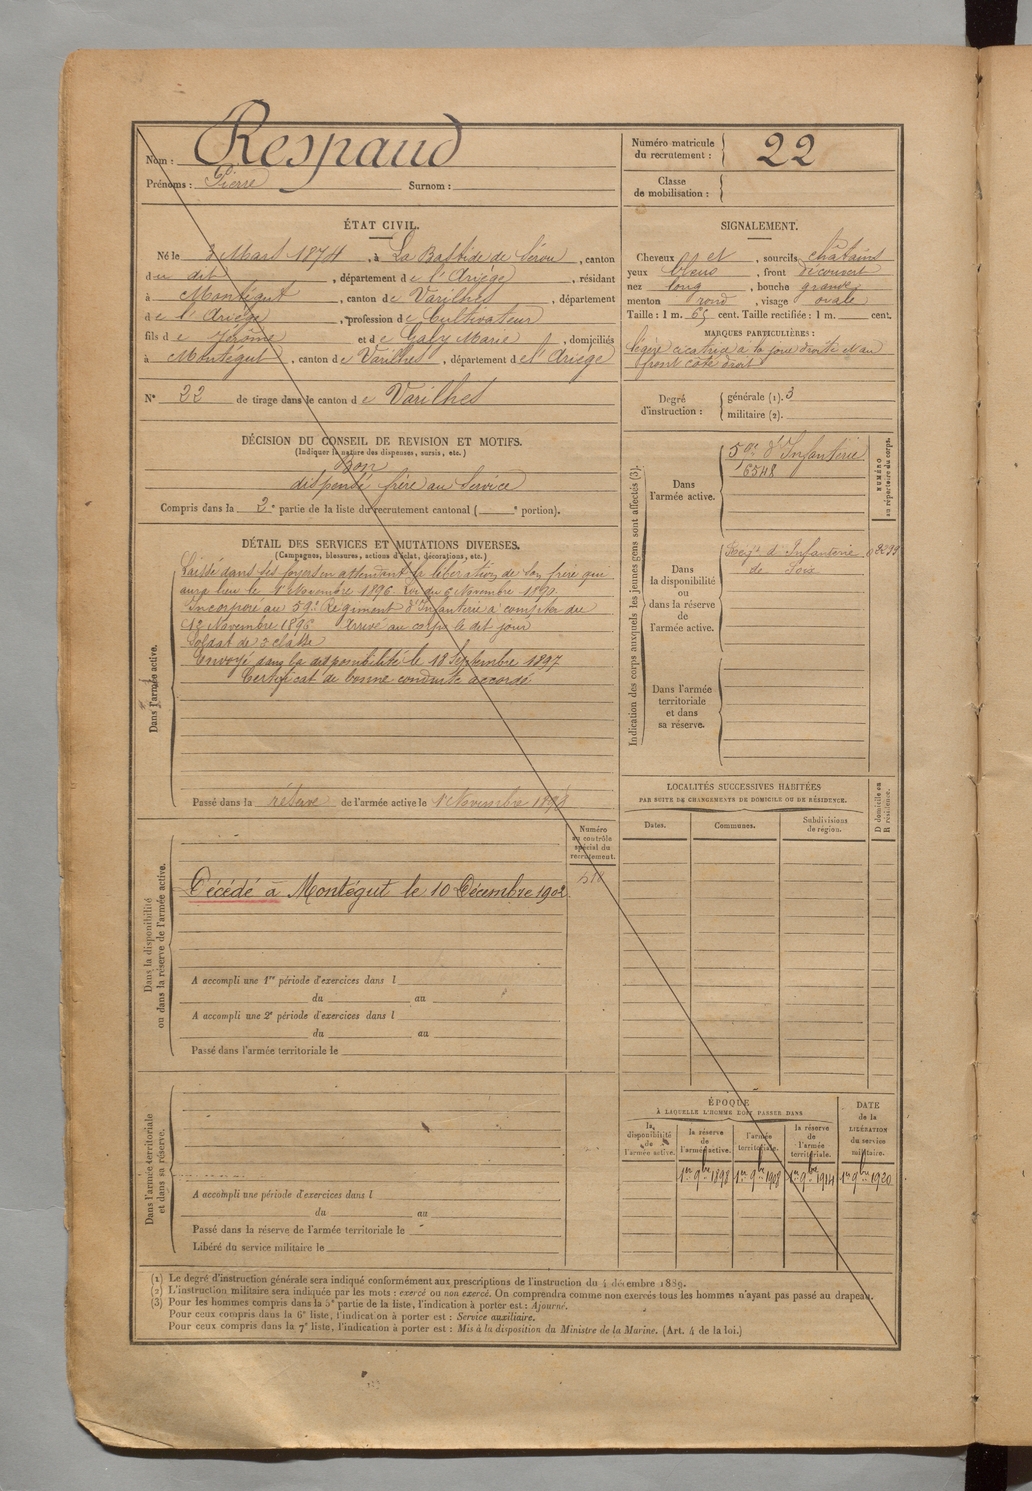 Nom : Respaud
Prénoms : Pierre Surnom :
Numéro matricule du recrutement : 22
Classe de mobilisation :
ÉTAT CIVIL.
Né le 3 Mars 1874, à La Bastide de Sérou, canton
du dit, département de l'Ariège, résidant
à Montégut, canton de Varilhes, département
de l'Ariège, profession de Cultivateur
fils de Jérôme et de Galy Marie, domiciliés
à Montégut, canton de Varilhes, département de l'Ariège
N° 22 de tirage dans le canton de Varilhes
SIGNALEMENT.
Cheveux et, sourcils châtains
yeux bleus, front découvert
nez long, bouche grande
menton rond, visage ovale
Taille : 1 m. 65 cent. Taille rectifiée : 1 m. cent.
MARQUES PARTICULIÈRES :
légère cicatrice à la joue droite et au
front côté droit
Degré d'instruction : générale (1). 3
militaire (2).
DÉCISION DU CONSEIL DE REVISION ET MOTIFS.
(Indiquer la nature des dispenses, sursis, etc.)
Bon
dispensé frère au Service
Compris dans la 2e partie de la liste du recrutement cantonal ( e portion).
DÉTAIL DES SERVICES ET MUTATIONS DIVERSES.
(Campagnes, blessures, actions d'éclat, décorations, etc.)
Dans l'armée active.
Laissé dans ses foyers en attendant la libération de son frère qui
aura lieu le 1er Novembre 1896. Loi du 6 Novembre 1890.
Incorporé au 59e Régiment d'Infanterie à compter du
12 Novembre 1896 Arrivé au corps le dit jour
Soldat de 2e classe
Envoyé dans la disponibilité le 18 Septembre 1897
Certificat de bonne conduite accordé
Passé dans la réserve de l'armée active le 1er Novembre 1898
Indication des corps auxquels les jeunes gens sont affectés (3).
NUMÉRO au répertoire du corps.
Dans l'armée active.
59e d'Infanterie
6548
Dans la disponibilité ou dans la réserve de l'armée active.
Régt d'Infanterie
de Foix
Dans l'armée territoriale et dans sa réserve.
LOCALITÉS SUCCESSIVES HABITÉES
PAR SUITE DE CHANGEMENTS DE DOMICILE OU DE RÉSIDENCE.
Dates. Communes. Subdivisions de région. D domicile ou R résidence.
Dans la disponibilité ou dans la réserve de l'armée active.
Numéro au contrôle spécial du recrutement.
Décédé à Montégut le 10 Décembre 1902
A accompli une 1re période d'exercices dans l
du au
A accompli une 2e période d'exercices dans l
du au
Passé dans l'armée territoriale le
Dans l'armée territoriale et dans sa réserve.
A accompli une période d'exercices dans l
du au
Passé dans la réserve de l'armée territoriale le
Libéré du service militaire le
ÉPOQUE
À LAQUELLE L'HOMME DOIT PASSER DANS
la disponibilité de l'armée active.
la réserve de l'armée active.
l'armée territoriale.
la réserve de l'armée territoriale.
DATE de la LIBÉRATION du service militaire.
1er 9bre 1898 1er 9bre 1908 1er 9bre 1914 1er 9bre 1920
(1) Le degré d'instruction générale sera indiqué conformément aux prescriptions de l'instruction du 4 décembre 1889.
(2) L'instruction militaire sera indiquée par les mots : exercé ou non exercé. On comprendra comme non exercés tous les hommes n'ayant pas passé au drapeau.
(3) Pour les hommes compris dans la 5e partie de la liste, l'indication à porter est : Ajourné.
Pour ceux compris dans la 6e liste, l'indication à porter est : Service auxiliaire.
Pour ceux compris dans la 7e liste, l'indication à porter est : Mis à la disposition du Ministre de la Marine. (Art. 4 de la loi.)